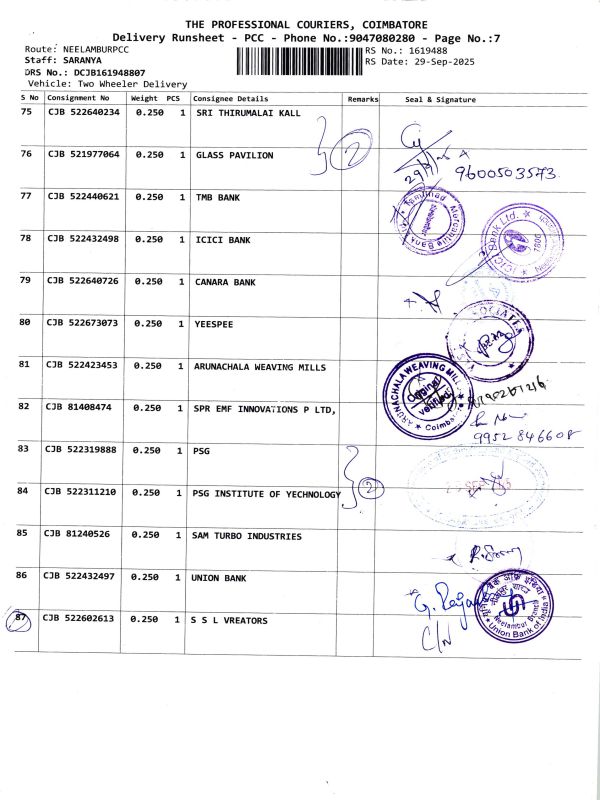 THE PROFESSIONAL COURIERS, COIMBATORE
Delivery Runsheet - PCC - Phone No.:9047080280 - Page No.:7
Route: NEELAMBURPCC
RS No.: 1619488
Staff: SARANYA
RS Date: 29-Sep-2025
DRS No.: DCJB161948807
Vehicle: Two Wheeler Delivery
S No Consignment No Weight PCS Consignee Details Remarks Seal & Signature
75 CJB 522640234 0.250 1 SRI THIRUMALAI KALL
2
76 CJB 521977064 0.250 1 GLASS PAVILION
9600503573
77 CJB 522440621 0.250 1 TMB BANK
Tamilnad Mercantile Bank
78 CJB 522432498 0.250 1 ICICI BANK
ICICI Bank Ltd.
79 CJB 522640726 0.250 1 CANARA BANK
80 CJB 522673073 0.250 1 YEESPEE
81 CJB 522423453 0.250 1 ARUNACHALA WEAVING MILLS
ARUNACHALA WEAVING MILLS
Original verified
82 CJB 81408474 0.250 1 SPR EMF INNOVATIONS P LTD,
9952846608
83 CJB 522319888 0.250 1 PSG
84 CJB 522311210 0.250 1 PSG INSTITUTE OF YECHNOLOGY
2
85 CJB 81240526 0.250 1 SAM TURBO INDUSTRIES
86 CJB 522432497 0.250 1 UNION BANK
Neelambur Branch
Union Bank of India
87 CJB 522602613 0.250 1 S S L VREATORS
C/N